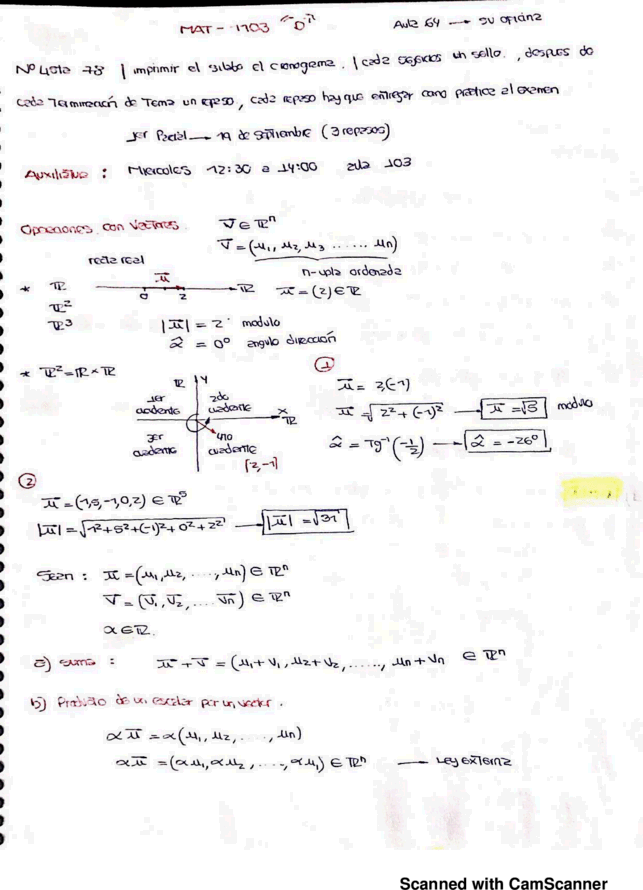 MAT - 1103 "D"
Aula 64 → su oficina
Nº Lista 78 | imprimir el silabo el cronograma. | cada ejercicios un sello. , despues de
cada Terminación de Tema un repaso, cada repaso hay que entregar como practica al examen
1er Parcial → 19 de Septiembre (3 repasos)
Auxiliatura : Miercoles 12:30 a 14:00 aula 103
Operaciones con Vectores V ∈ ℝⁿ
V = (u₁, u₂, u₃ ...... uₙ)
n-upla ordenada
recta real
* ℝ u 0 2 ℝ u = (2) ∈ ℝ
ℝ²
ℝ³
|u| = 2 modulo
α̂ = 0° angulo dirección
* ℝ² = ℝ × ℝ
ℝ Y
1er cuadente
2do cuadente
X ℝ
3er cuadente
4to cuadente
[2,-1]
①
u = 2,(-1)
u = √(2² + (-1)²) → u = √5 modulo
α̂ = Tg⁻¹(-1/2) → α̂ = -26°
②
u = (1,5,-1,0,2) ∈ ℝ⁵
|u| = √(1²+5²+(-1)²+0²+2²) → |u| = √31
Sean : u = (u₁, u₂, ...., uₙ) ∈ ℝⁿ
V = (V₁, V₂, .... Vn) ∈ ℝⁿ
α ∈ ℝ.
a) suma : u + v = (u₁+v₁, u₂+v₂, ......, uₙ+vₙ ∈ ℝⁿ
b) Producto de un escalar por un vector.
αu = α(u₁, u₂, ...., uₙ)
αu = (αu₁, αu₂, ...., αu₁) ∈ ℝⁿ → Ley externa
Scanned with CamScanner